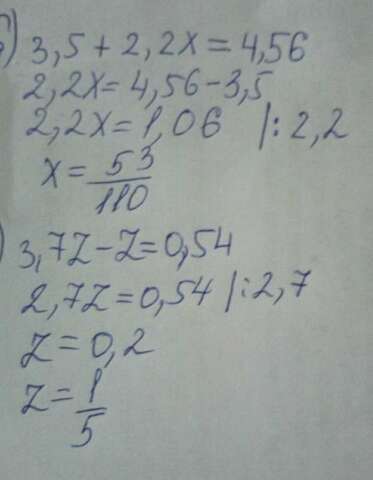 б) 3,5 + 2,2x = 4,56
2,2x = 4,56 - 3,5
2,2x = 1,06 |: 2,2
x = 53/110
) 3,7z - z = 0,54
2,7z = 0,54 |: 2,7
z = 0,2
z = 1/5